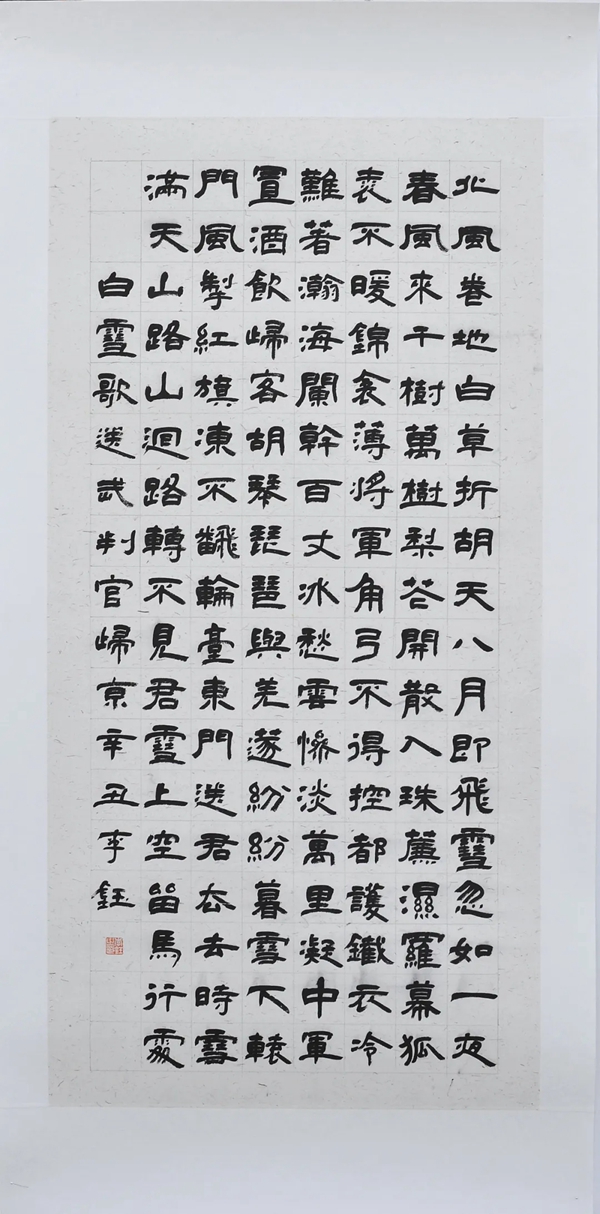 北風卷地白草折胡天八月即飛雪忽如一夜
春風來千樹萬樹梨花開散入珠簾濕羅幕狐
裘不暖錦衾薄將軍角弓不得控都護鐵衣冷
難著瀚海闌幹百丈冰愁雲慘淡萬里凝中軍
置酒飲歸客胡琴琵琶與羌遂紛紛暮雪下轅
門風掣紅旗凍不飜輪臺東門送君去去時雪
滿天山路山迴路轉不見君雪上空留馬行處
白雪歌送武判官歸京辛丑李鈺